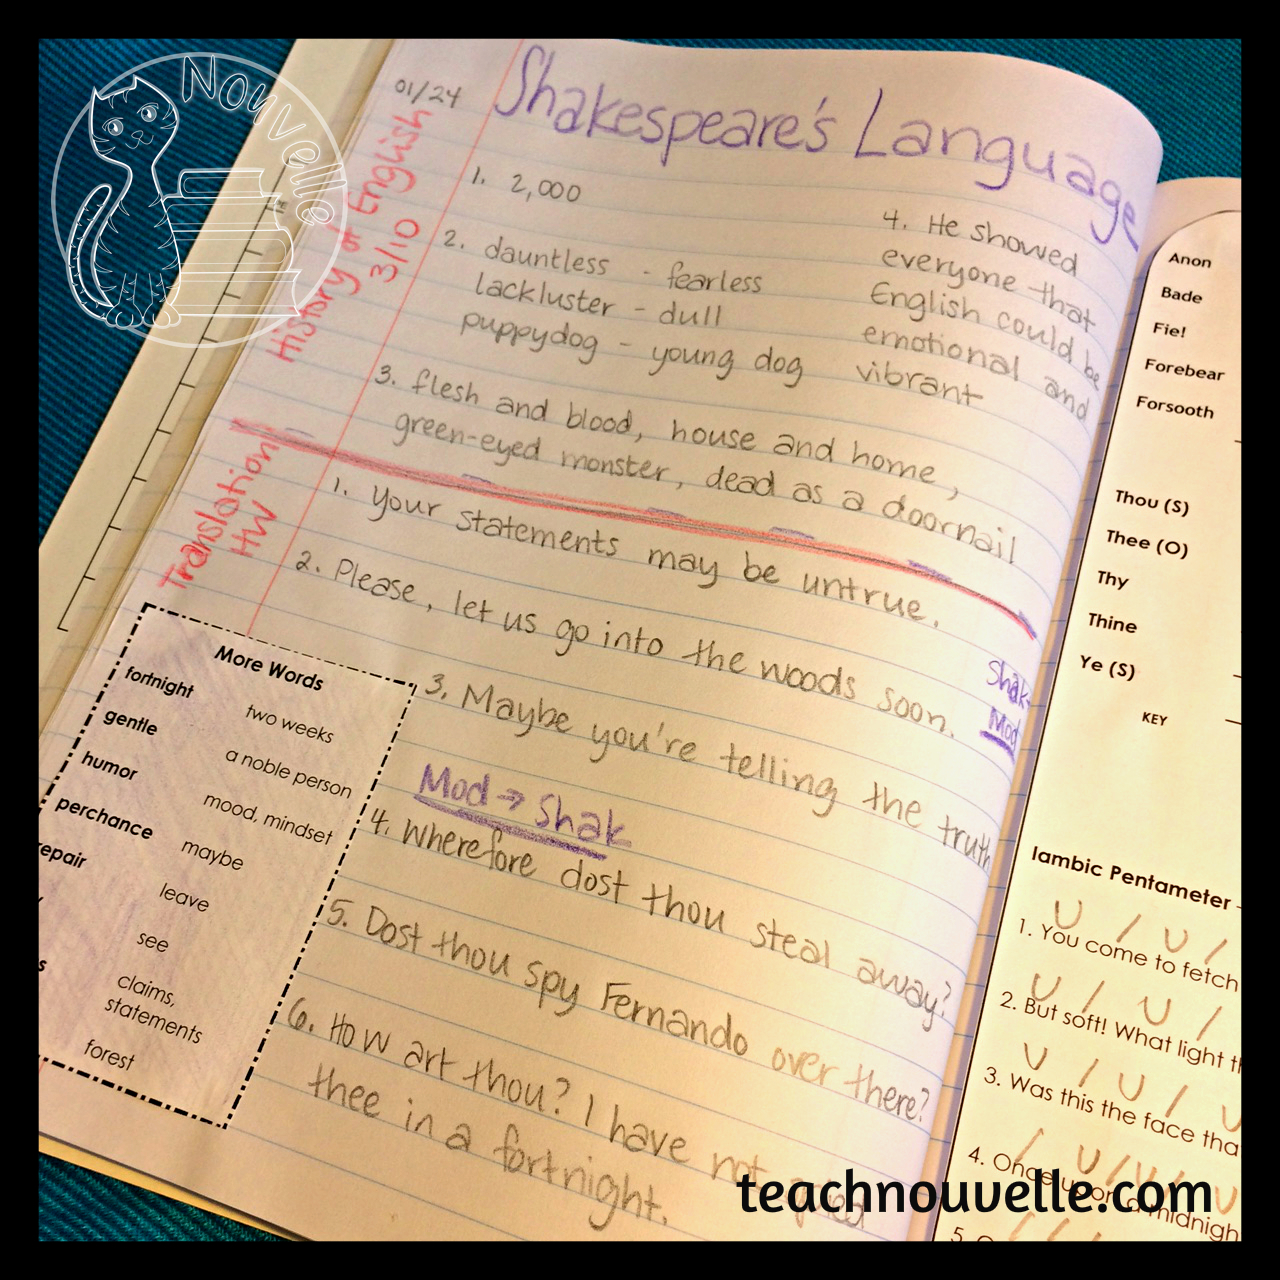 Nouvelle
01/24
Shakespeare's Language
History of English
3/10
1. 2,000
2. dauntless - fearless
lackluster - dull
puppydog - young dog
3. flesh and blood, house and home,
green-eyed monster, dead as a doornail
4. He showed
everyone that
English could be
emotional and
vibrant
Translation
HW
1. Your statements may be untrue.
2. Please, let us go into the woods soon.
3. Maybe you're telling the truth
Mod → Shak
4. Wherefore dost thou steal away?
5. Dost thou spy Fernando over there?
6. How art thou? I have not spied
thee in a fortnight.
Shak
Mod
More Words
fortnight two weeks
gentle a noble person
humor mood, mindset
perchance maybe
repair leave
see
claims,
statements
forest
Anon
Bade
Fie!
Forebear
Forsooth
Thou (S)
Thee (O)
Thy
Thine
Ye (S)
KEY
Iambic Pentameter -
1. You come to fetch
2. But soft! What light
3. Was this the face
4. Once upon a midnigh
5.
teachnouvelle.com